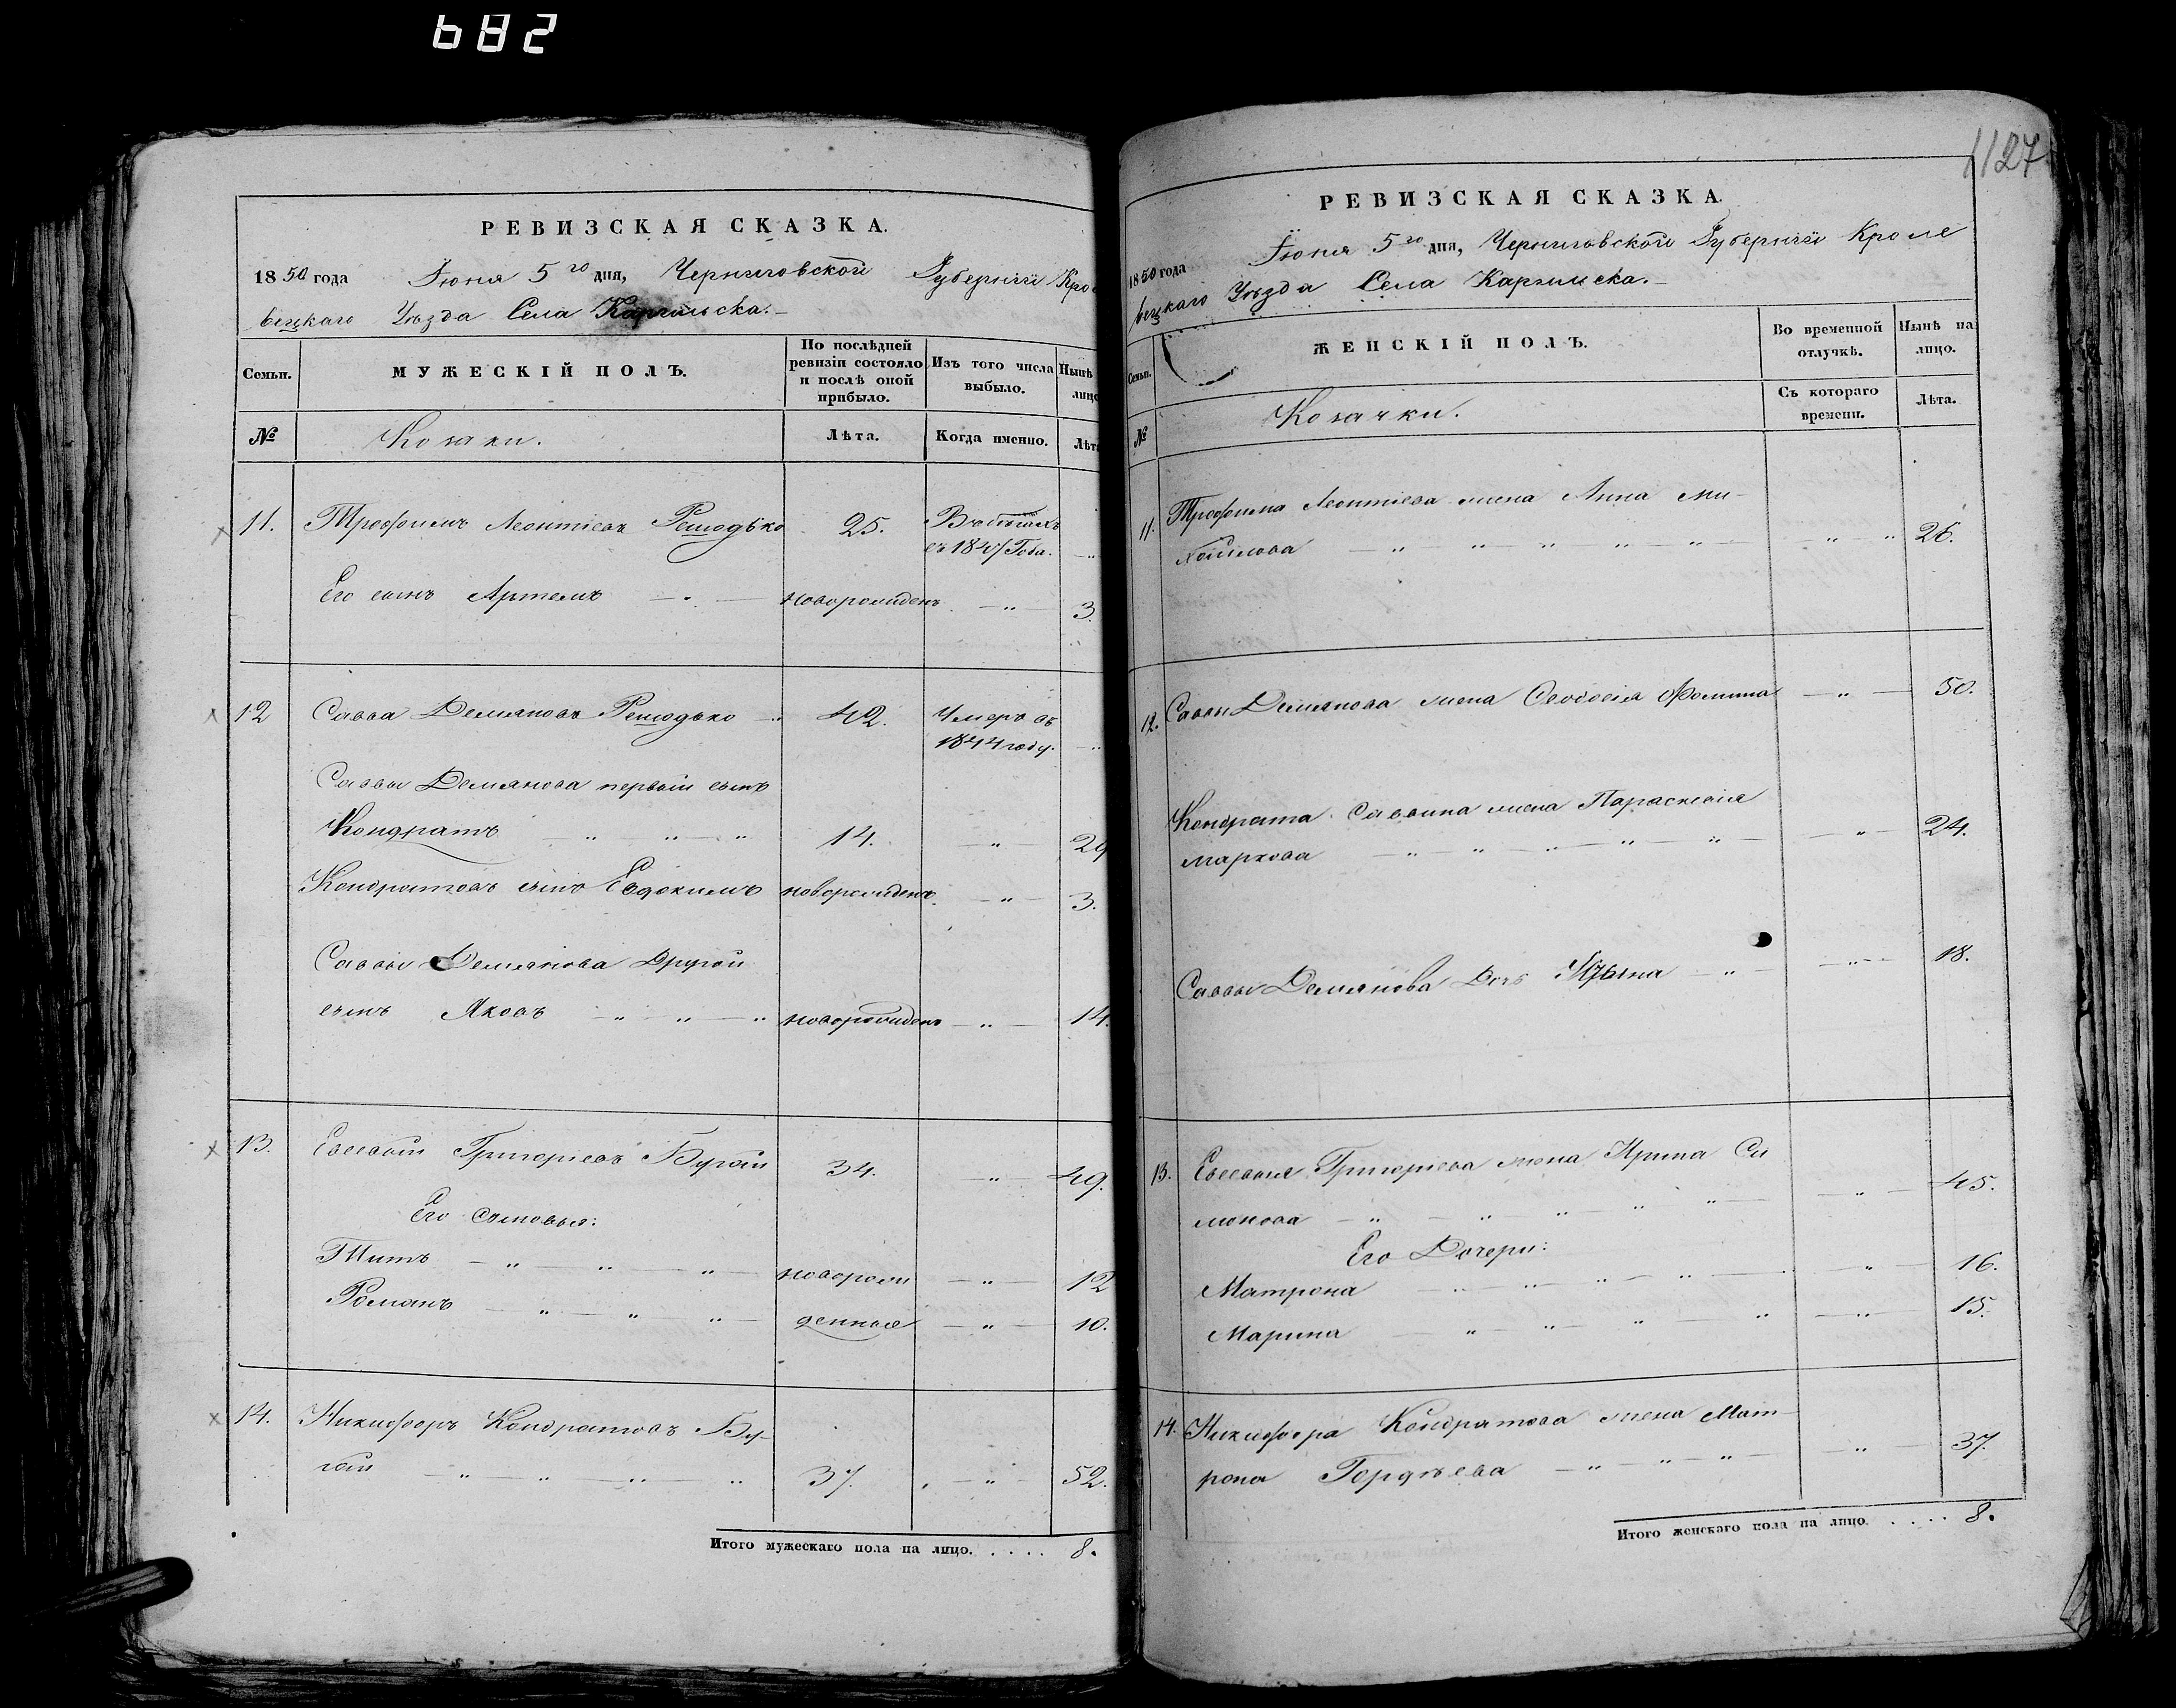 682
РЕВИЗСКАЯ СКАЗКА.
1850 года Іюня 5го дня, Черниговской Губерніи Кро
вецкаго Уѣзда Села
Семьи.
МУЖЕСКІЙ ПОЛЪ.
По послѣдней ревизіи состояло и послѣ оной прибыло.
Изъ того числа выбыло.
Нынѣ лицо
№
Козаки.
Лѣта.
Когда именно.
Лѣт
11. Трофимъ Леонтіевъ 25. В бѣгахъ
съ 1847 Года.
Его сынъ Артемъ новорожденъ 3.
12 Савва Демяновъ 42. Умеръ въ
1844 году.
Саввы Демянова первый сынъ
Кондратъ 14. 29
Кондратовъ сынъ Евдокимъ новорожденъ 3.
Саввы Демянова Другой
сынъ Яковъ новорожденъ 14.
13. Евсевій Григорьевъ Бугай 34. 49.
Его Сыновья:
Титъ новорож 12
Романъ денные 10.
14. Никифоръ Кондратовъ Бу-
гай 37. 52.
Итого мужескаго пола на лицо. . . . . 8.
1127
РЕВИЗСКАЯ СКАЗКА.
1850 года Іюня 5го дня, Черниговской Губерніи Кроле
вецкаго Уѣзда Села
Семьи.
ЖЕНСКІЙ ПОЛЪ.
Во временной отлучкѣ.
Нынѣ на лицо.
№
Козачки.
Съ котораго времени.
Лѣта.
11. Трофима Леонтіева жена Анна Ми-
хайлова 26.
12. Саввы Демянова жена Феодосія Фомина 50.
Кондрата Саввина жена Параскевія
Маркова 24.
Саввы Демянова Дочь 18.
13. Евсевія Григорьева жена Ирина Си
монова 45.
Его Дочери:
Матрона 16.
Марина 15.
14. Никифора Кондратова жена Мат-
рона Гордѣева 37.
Итого женскаго пола на лицо. . . . . 8.